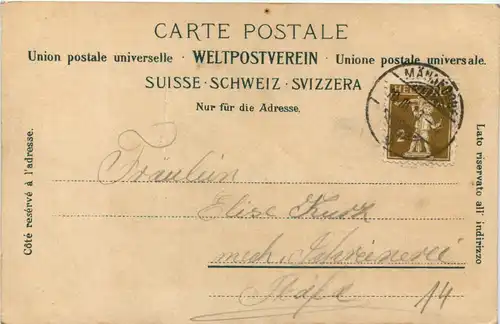 CARTE POSTALE
Union postale universelle · WELTPOSTVEREIN · Unione postale universale.
SUISSE · SCHWEIZ · SVIZZERA
Nur für die Adresse.
Côté resérvé à l'adresse.
Lato riservato all' indirizzo
HELVETIA
2
Fräulein
Elise Kunz
mech. Schreinerei
Stäfa
14